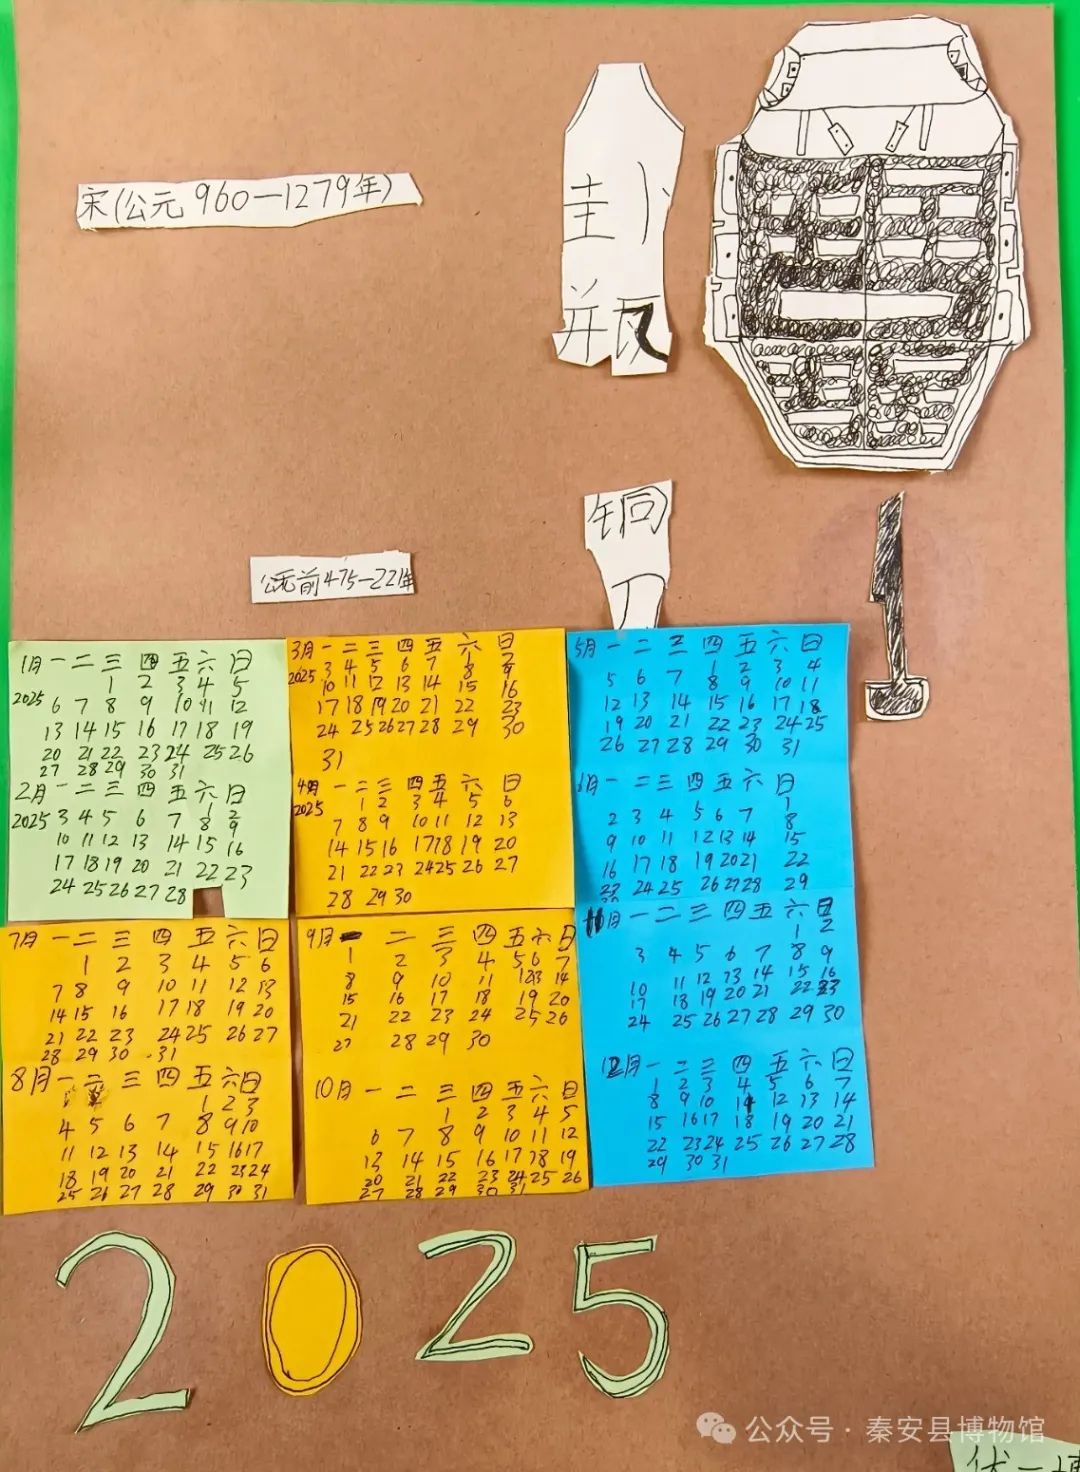 宋(公元960—1279年)
卦
瓶
铜
公元前475—221年
1月 一 二 三 四 五 六 日
1 2 3 4 5
2025 6 7 8 9 10 11 12
13 14 15 16 17 18 19
20 21 22 23 24 25 26
27 28 29 30 31
2月 一 二 三 四 五 六 日
1 2
2025 3 4 5 6 7 8 9
10 11 12 13 14 15 16
17 18 19 20 21 22 23
24 25 26 27 28
3月 一 二 三 四 五 六 日
1 2
2025 3 4 5 6 7 8 9
10 11 12 13 14 15 16
17 18 19 20 21 22 23
24 25 26 27 28 29 30
31
4月 一 二 三 四 五 六 日
2025 1 2 3 4 5 6
7 8 9 10 11 12 13
14 15 16 17 18 19 20
21 22 23 24 25 26 27
28 29 30
5月 一 二 三 四 五 六 日
1 2 3 4
5 6 7 8 9 10 11
12 13 14 15 16 17 18
19 20 21 22 23 24 25
26 27 28 29 30 31
6月 一 二 三 四 五 六 日
1
2 3 4 5 6 7 8
9 10 11 12 13 14 15
16 17 18 19 20 21 22
23 24 25 26 27 28 29
30
7月 一 二 三 四 五 六 日
1 2 3 4 5 6
7 8 9 10 11 12 13
14 15 16 17 18 19 20
21 22 23 24 25 26 27
28 29 30 31
8月 一 二 三 四 五 六 日
1 2 3
4 5 6 7 8 9 10
11 12 13 14 15 16 17
18 19 20 21 22 23 24
25 26 27 28 29 30 31
9月 一 二 三 四 五 六 日
1 2 3 4 5 6 7
8 9 10 11 12 13 14
15 16 17 18 19 20
21 22 23 24 25 26
27 28 29 30
10月 一 二 三 四 五 六 日
1 2 3 4 5
6 7 8 9 10 11 12
13 14 15 16 17 18 19
20 21 22 23 24 25 26
27 28 29 30 31
11月 一 二 三 四 五 六 日
1 2
3 4 5 6 7 8 9
10 11 12 13 14 15 16
17 18 19 20 21 22 23
24 25 26 27 28 29 30
12月 一 二 三 四 五 六 日
1 2 3 4 5 6 7
8 9 10 11 12 13 14
15 16 17 18 19 20 21
22 23 24 25 26 27 28
29 30 31
2025
公众号·秦安县博物馆